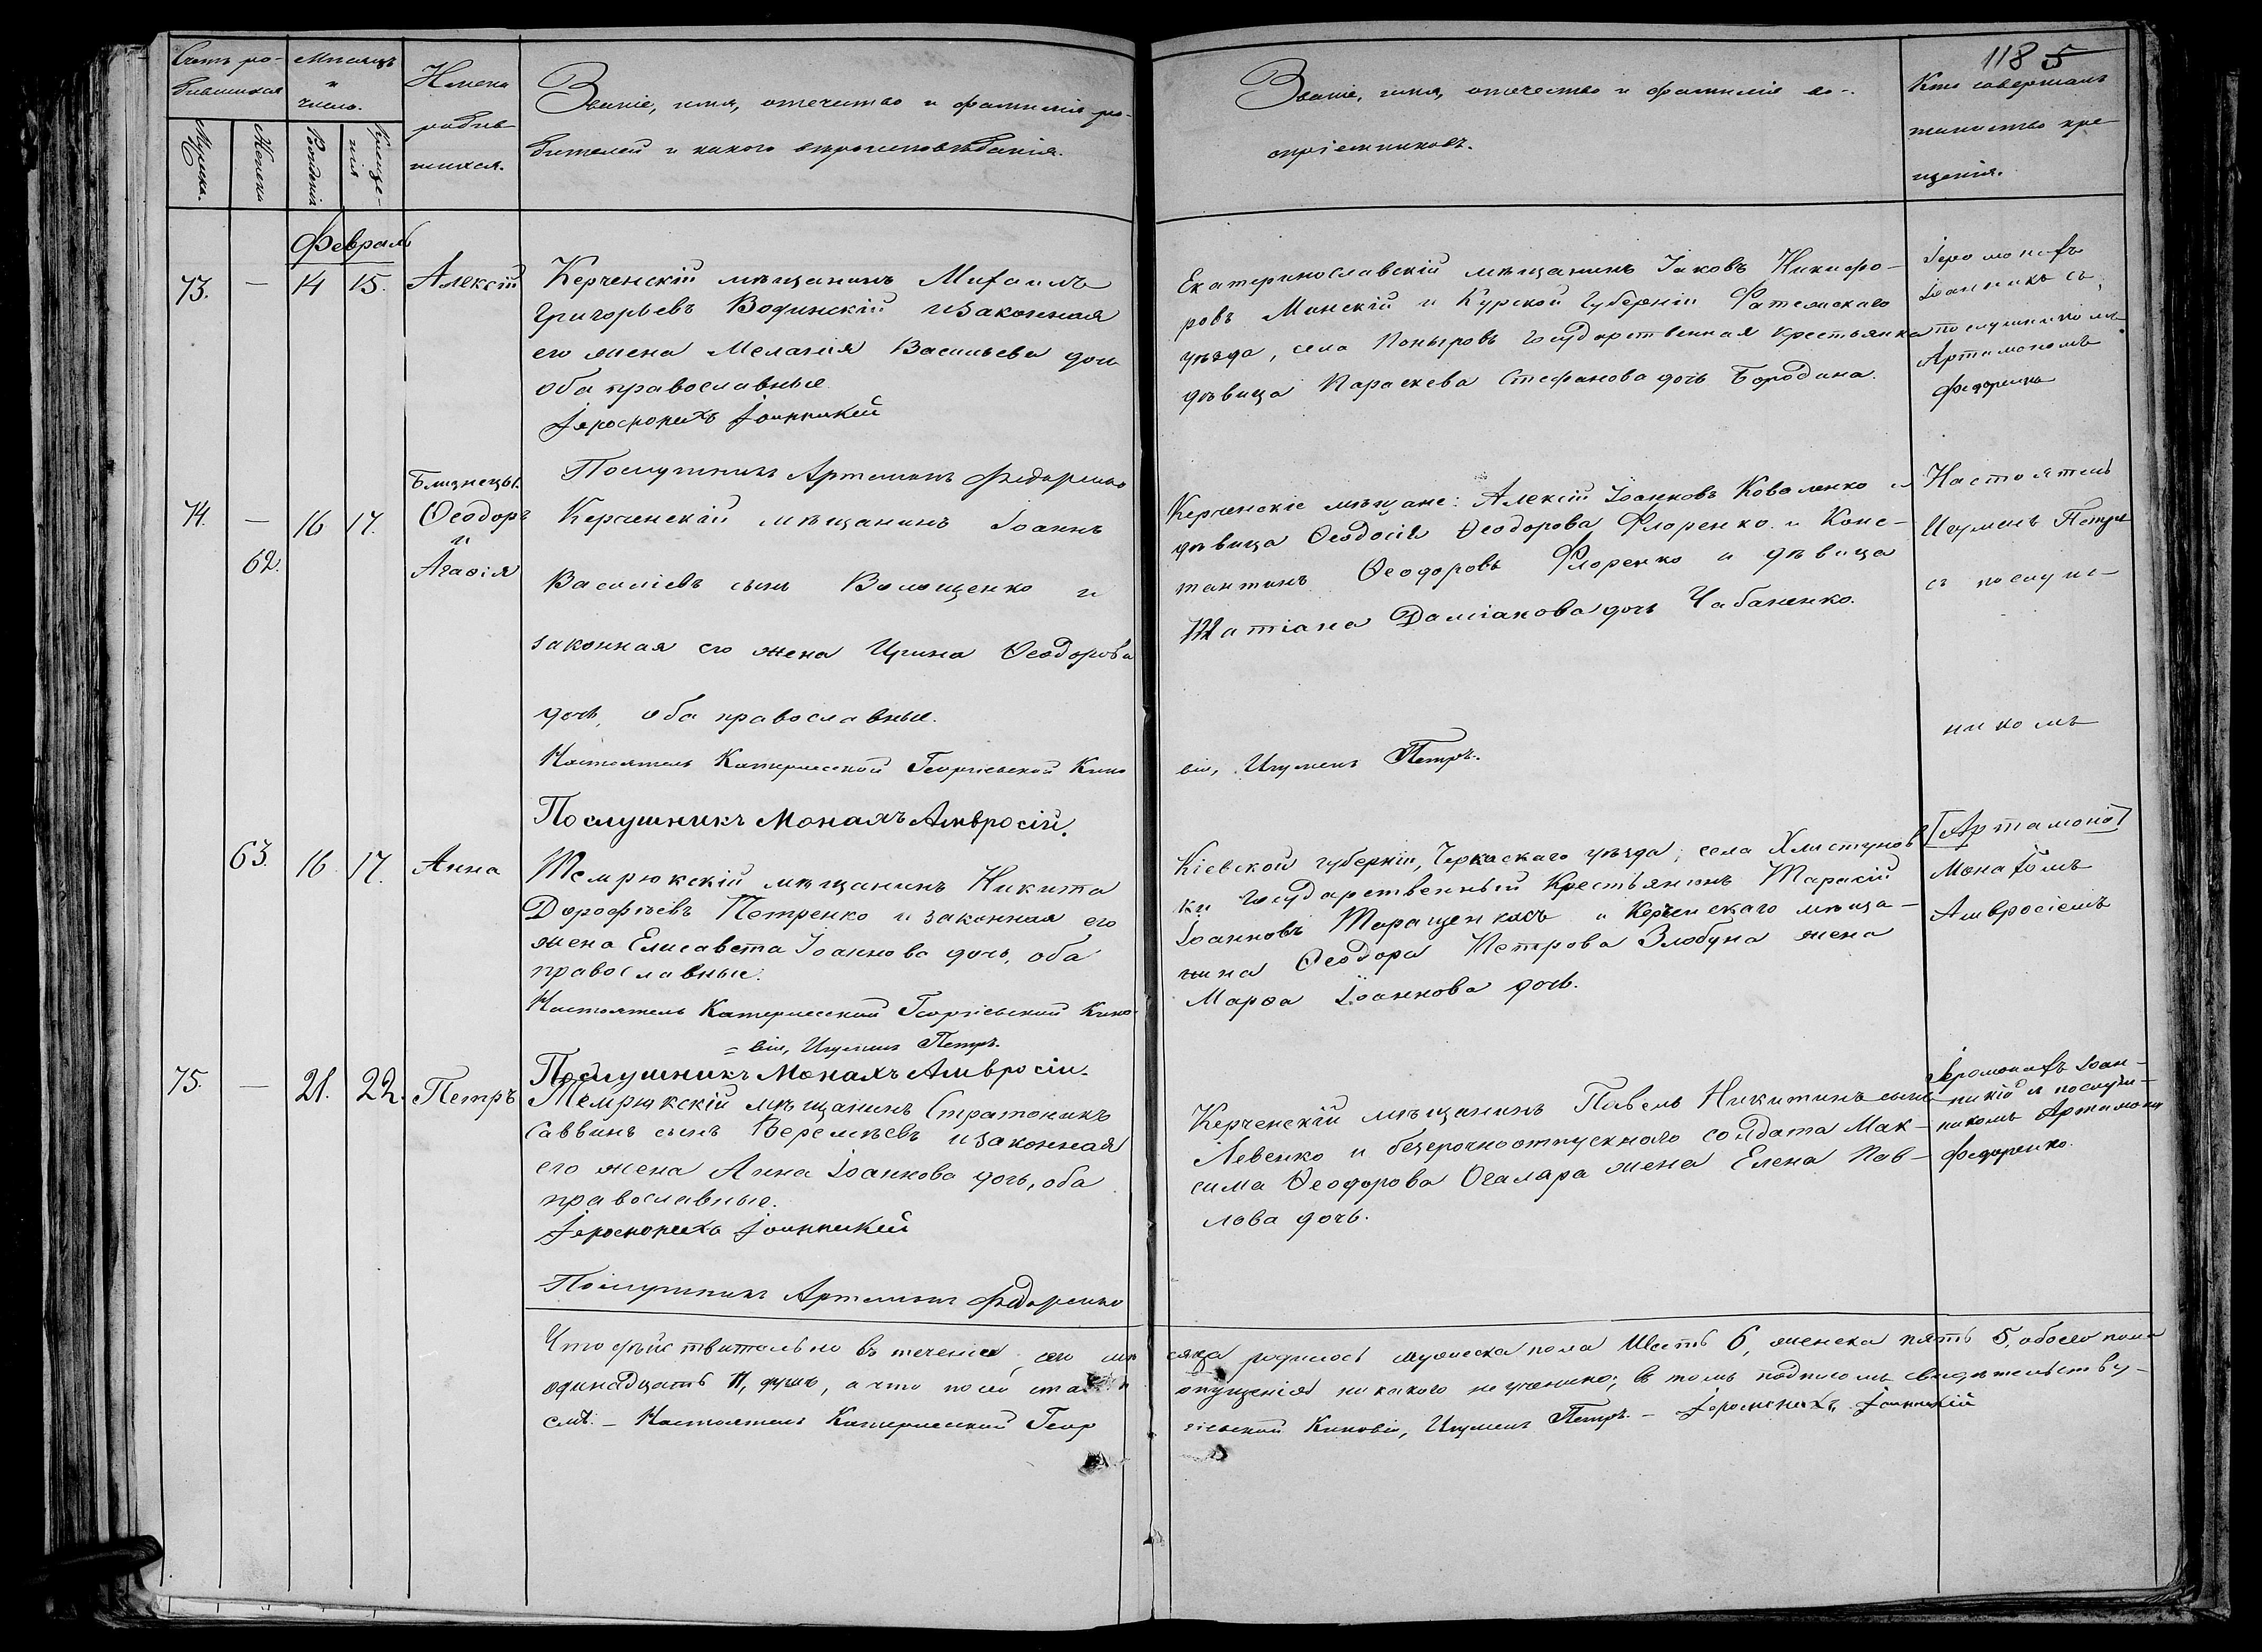 118 5
Счетъ ро-
дившихся
Мѣсяцъ
и
число.
Имена
родив
шихся.
Званіе, имя, отечество и фамилія ро-
дителей и какого вѣроисповѣданія.
Мужска.
Женска
Рожденія
Креще-
нія
Званіе, имя, отечество и фамилія во-
спріемниковъ.
Кто совершалъ
таинство кре
щенія.
Февраль
73. — 14 15. Алексій
Керченскій мѣщанинъ Михаилъ
Григорьевъ Водинскій и законная
его жена Мелагія Васильева доч
оба православные
Іеромонахъ Іоанникій
Послушникъ Артамонъ Федоренко
Екатеринославскій мѣщанинъ Іаковъ Никифо-
ровъ Минскій и Курской Губерніи Фатежскаго
уѣзда, села Поныровъ государственная крестьянка
дѣвица Параскева Стефанова дочь Бородина.
Іеромонахъ
Іоанникъ съ
послушникомъ
Артамономъ
Федоренко
74. — 16 17.
62.
Близнецы.
Ѳеодоръ
и
Агаѳія
Керченскій мѣщанинъ Іоаннъ
Василіевъ сынъ Волощенко и
законная его жена Ирина Ѳеодорова
дочь, оба православные.
Настоятель Катерлесской Георгіевской Кино
Послушникъ Монахъ Амвросій.
Керченскіе мѣщане: Алексій Іоанновъ Коваленко и
дѣвица Ѳеодосія Ѳеодорова Флоренко и Конс-
тантинъ Ѳеодоровъ Флоренко и дѣвица
Татіана Даміанова дочь Чабаненко.
віи, Игуменъ Петръ.
Настоятель
Игуменъ Петръ
съ послуш-
никомъ
63. 16 17. Анна
Темрюкскій мѣщанинъ Никита
Дорофѣевъ Петренко и законная его
жена Елисавета Іоаннова дочь, оба
православные.
Настоятель Катерлесской Георгіевской Кино
= віи, Игуменъ Петръ.
Послушникъ Монахъ Амвросій.
Кіевской губерніи, Черкаскаго уѣзда, села Хлистунов
ки государственный Крестьянинъ Тарасій
Іоанновъ Таращенкосъ и Керченскаго мѣща-
нина Ѳеодора Петрова Злобуна жена
Марѳа Іоаннова дочь.
[Артамоно]
Монахомъ
Амвросіемъ
75. — 21. 22. Петръ
Темрюкскій мѣщанинъ Стратоникъ
Саввинъ сынъ Веремѣевъ и законная
его жена Анна Іоаннова дочь, оба
православные.
Іеромонахъ Іоанникій
Послушникъ Артамонъ Федоренко
Керченскій мѣщанинъ Павелъ Никитинъ сынъ
Левенко и безсрочноотпускнаго солдата Мак-
сима Ѳеодорова Огаляра жена Елена Пав-
лова дочь.
Іеромонахъ Іоан-
никій и послуш-
никомъ Артамоном
Федоренко.
Что дѣйствительно въ теченіи сего мѣ сяца родилось мужеска пола Шесть 6, женска пять 5, обоего пола
одинадцать 11, душъ, а что по сей ста опущенія никакого не учинено; въ томъ подписомъ свидѣтельству-
емъ. — Настоятель Катерлесской Геор гіевской Киновіи, Игуменъ Петръ. — Іеромонахъ Іоанникій